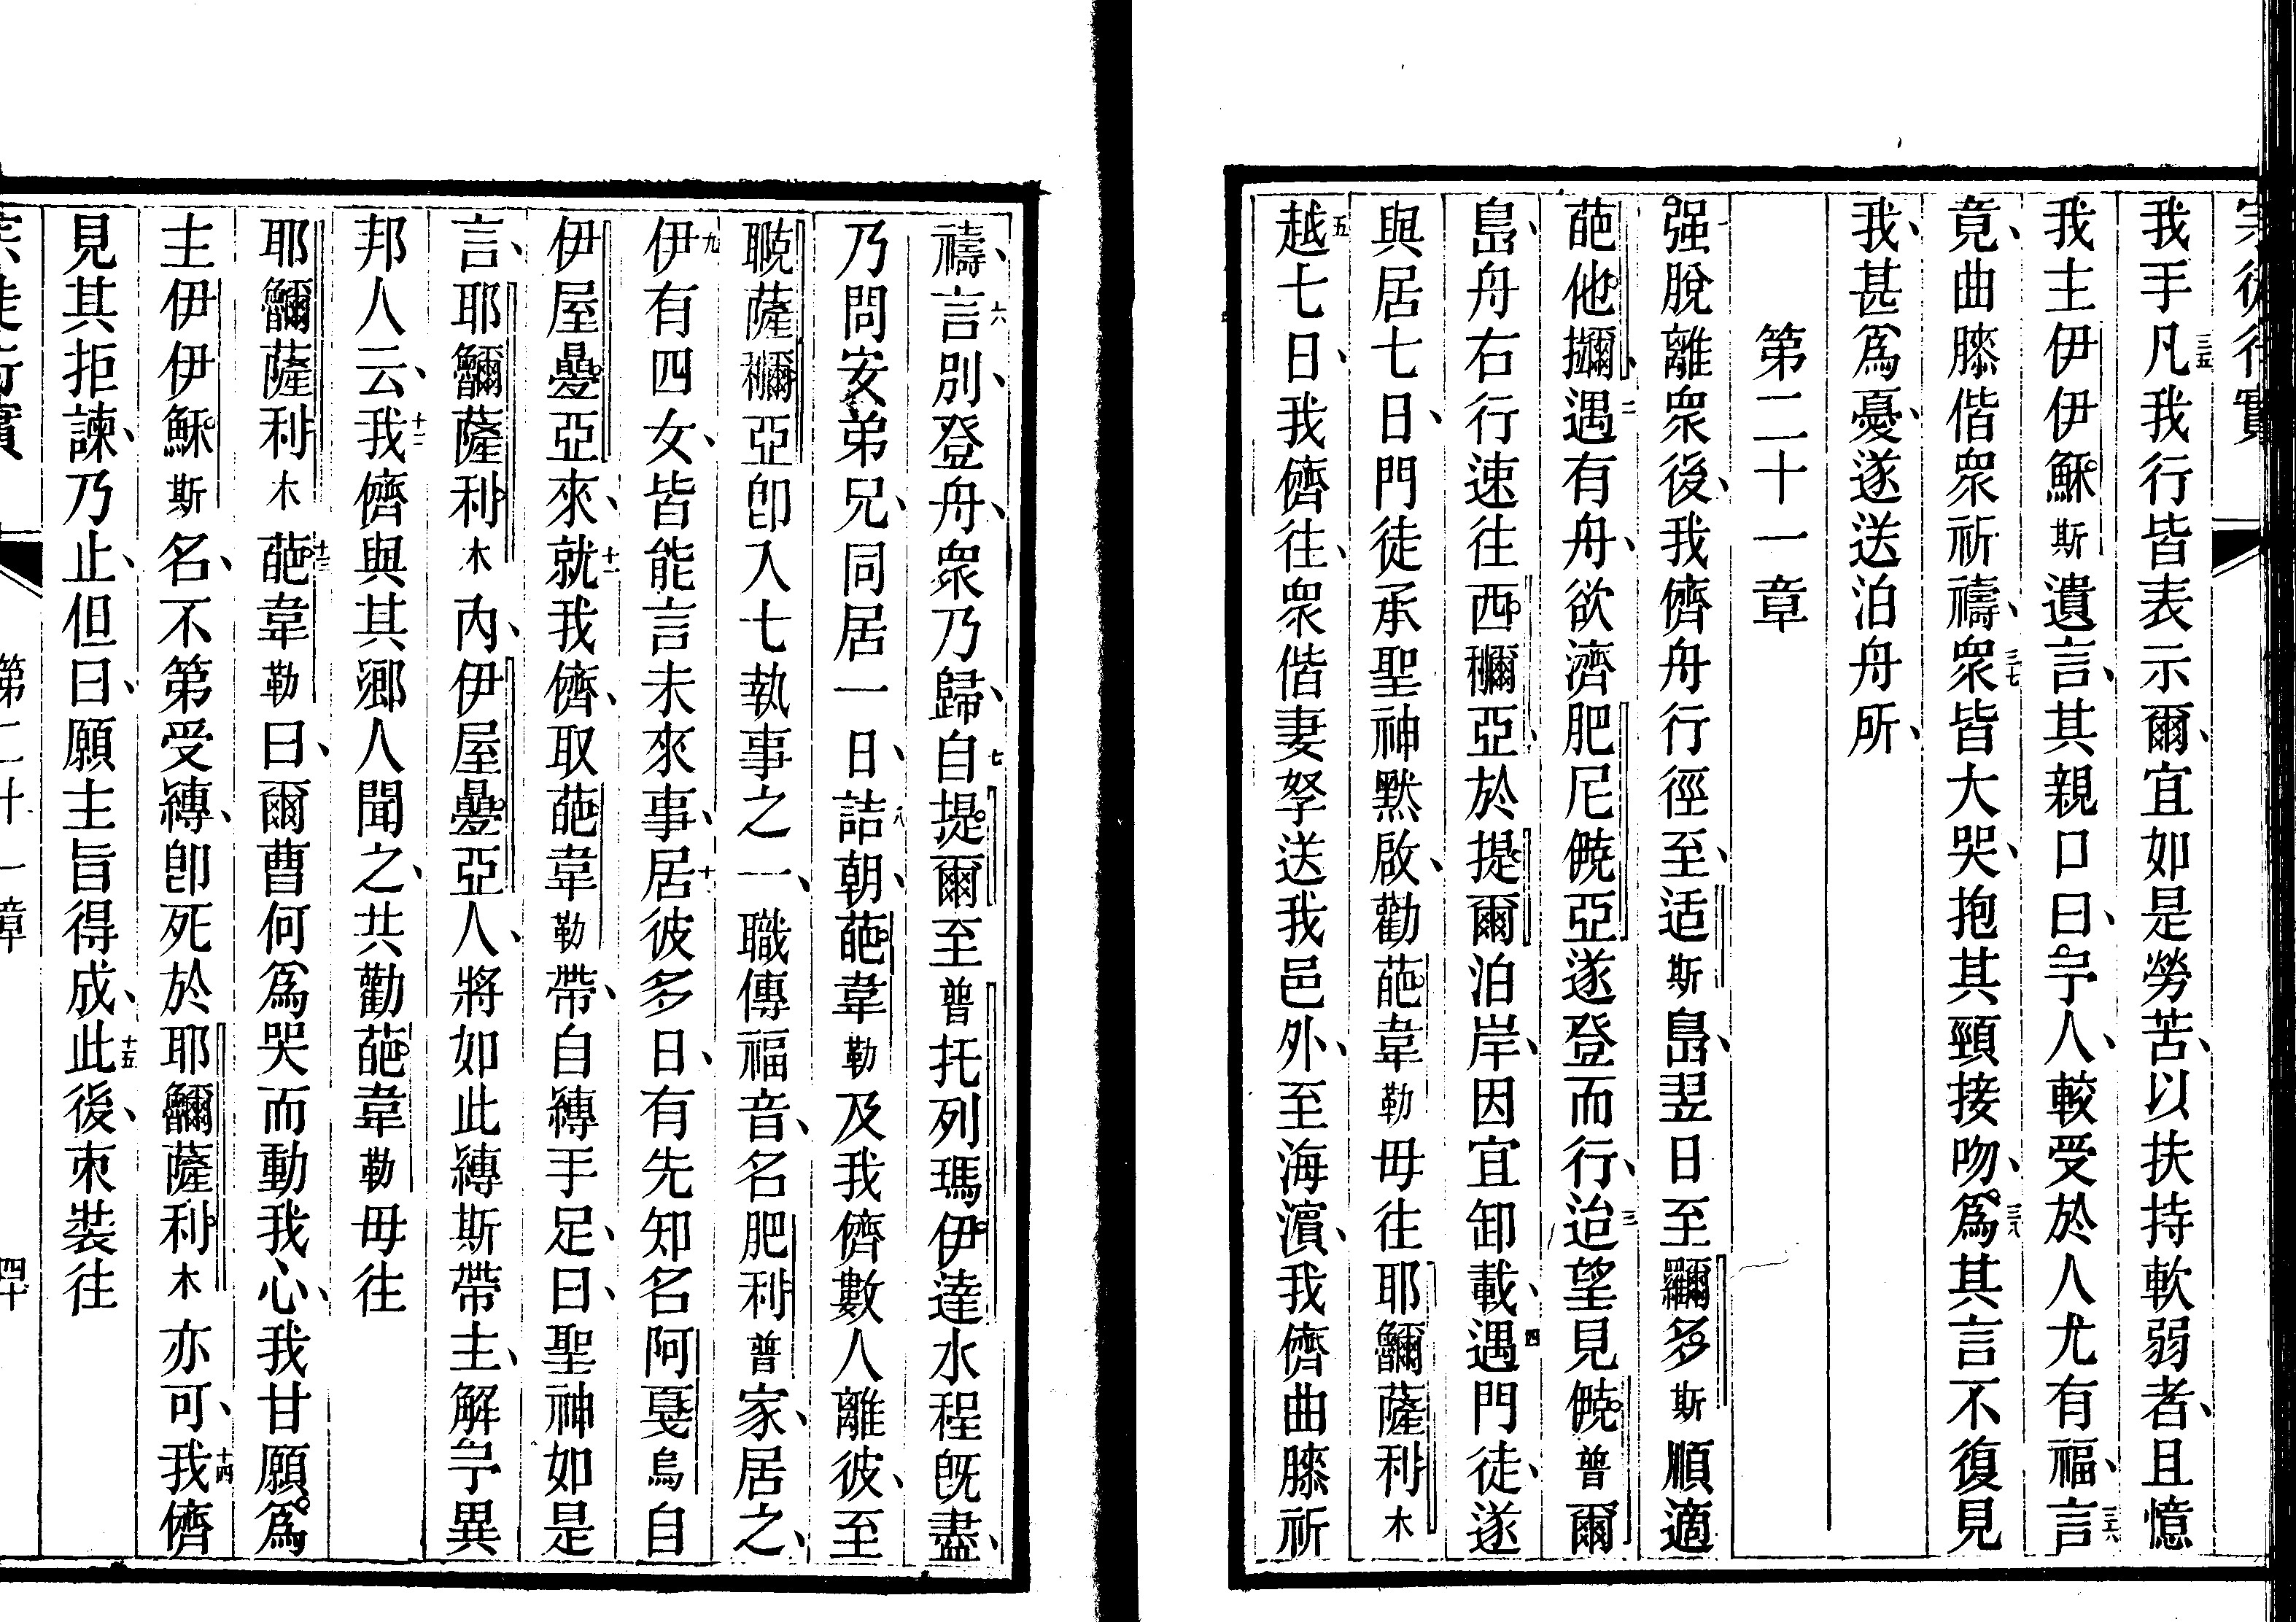 我手三五凡我行皆表示爾、宜如是勞苦、以扶持軟弱者、且憶
我主伊伊穌斯遺言、其親口曰、予人、較受於人尤有福、三六言
竟、曲膝偕衆祈禱、三七衆皆大哭、抱其頸接吻、三八爲其言不復見
我、甚爲憂、遂送泊舟所、
第二十一章
一强脫離衆後、我儕舟行徑至、适斯島、翌日至囉多斯順適
葩他攡、二遇有舟、欲濟肥尼𠆩亞遂登而行、三迨望見𠆩普爾
島、舟右行速往西穪亞、於提爾泊岸、因宜卸載、四遇門徒、遂
與居七日、門徒承聖神默啟、勸葩韋勒毋往耶薩利木
五越七日、我儕往、衆偕妻孥送我邑外、至海濱、我儕曲膝祈
禱、六言別、登舟、衆乃歸、七自提爾至普托列瑪伊達水程旣盡、
乃問安弟兄、同居一日、八詰朝、葩韋勒及我儕數人離彼、至
薩穪亞卽入七執事之一、職傳福音、名肥利普家、居之、
九伊有四女、皆能言未來事、十居彼多日、有先知名阿戛烏自
伊屋疊亞來、十一就我儕、取葩韋勒帶、自縛手足、曰、聖神如是
言、耶薩利木內、伊屋疊亞人、將如此縛斯帶主、解予異
邦人云、十二我儕與其鄕人聞之、共勸葩韋勒毋往
耶薩利木十三葩韋勒曰、爾曹何爲哭而動我心、我甘願爲
主伊伊穌斯名、不第受縛、卽死於耶薩利木亦可、十四我儕
見其拒諫、乃止、但曰、願主旨得成、十五此後、束裝往
第二十一章
四十